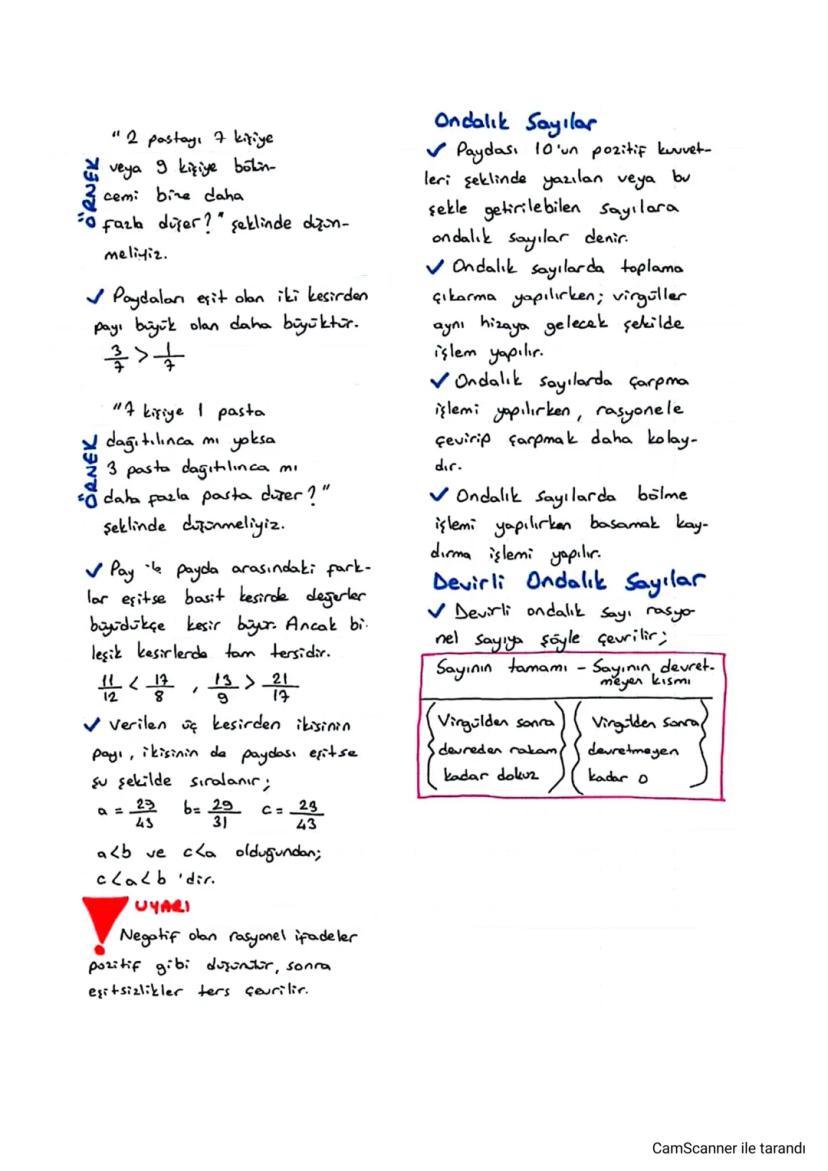 "2 pastayı 7 kişiye
ÖRNEK
veya 9 kişiye bölün-
cemi bize daha
fazla düşer?" şeklinde düşün-
meliyiz.
✓ Paydaları eşit olan iki kesirden
payı büyük olan daha büyüktür.
3/7 > 1/7
"7 kişiye 1 pasta
ÖRNEK
dağıtılınca mı yoksa
3 pasta dağıtılınca mı
daha fazla pasta düşer?"
şeklinde düşünmeliyiz.
✓ Pay ile payda arasındaki fark-
lar eşitse basit kesirde değerler
büyüdükçe kesir büyür. Ancak bi-
leşik kesirlerde tam tersidir.
11/12 < 17/8 , 13/9 > 21/17
✓ Verilen üç kesirden ikisinin
payı, ikisinin de paydası eşitse
şu şekilde sıralanır;
a = 29/43 b = 29/31 c = 23/43
a<b ve c<a olduğundan;
c<a<b 'dir.
UYARI
Negatif olan rasyonel ifadeler
pozitif gibi düşünülür, sonra
eşitsizlikler ters çevrilir.
Ondalık Sayılar
✓ Paydası 10'un pozitif kuvvet-
leri şeklinde yazılan veya bu
şekle getirilebilen sayılara
ondalık sayılar denir.
✓ Ondalık sayılarda toplama
çıkarma yapılırken; virgüller
aynı hizaya gelecek şekilde
işlem yapılır.
✓ Ondalık sayılarda çarpma
işlemi yapılırken, rasyonele
çevirip çarpmak daha kolay-
dır.
✓ Ondalık sayılarda bölme
işlemi yapılırken basamak kay-
dırma işlemi yapılır.
Devirli Ondalık Sayılar
✓ Devirli ondalık sayı rasyo-
nel sayıya şöyle çevrilir;
Sayının tamamı - Sayının devret-
meyen kısmı
(Virgülden sonra) (Virgülden sonra)
devreden rakam devretmeyen
kadar dokuz kadar 0
CamScanner ile tarandı